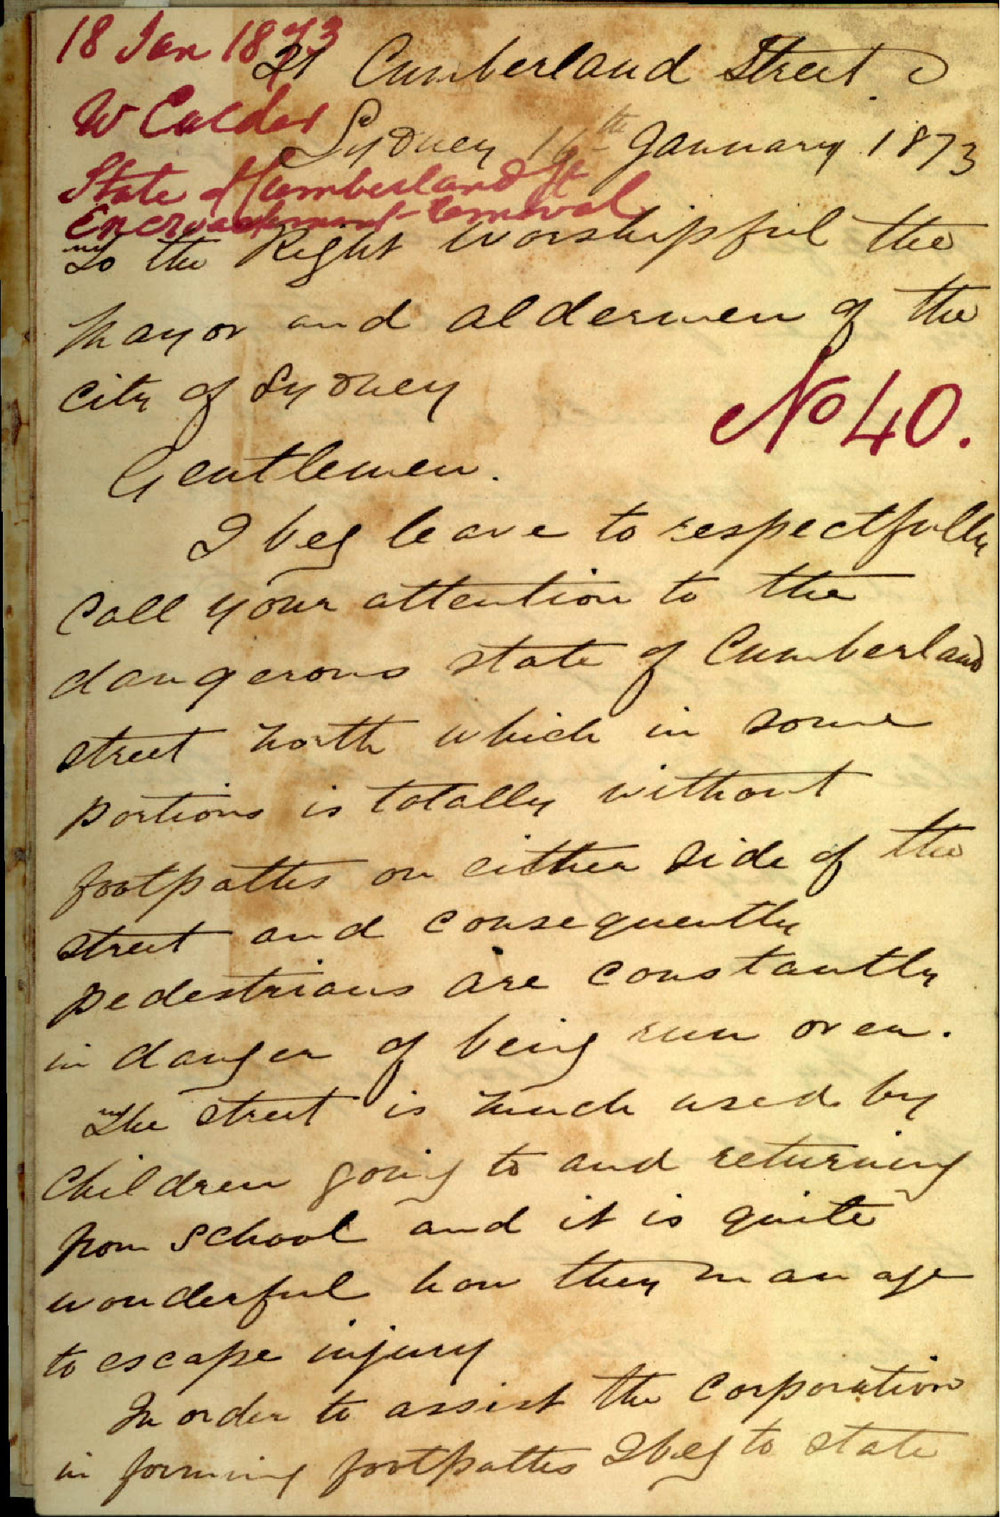 18 Jan 1873
21 Cumberland Street
W Calder
Sydney 16th January 1873
State of Cumberland St
Encroachment removal
To the Right Worshipful the
Mayor and Aldermen of the
City of Sydney
No 40.
Gentlemen.
I beg leave to respectfully
call your attention to the
dangerous state of Cumberland
street north which in some
portions is totally without
footpaths on either side of the
street and consequently
pedestrians are constantly
in danger of being run over.
The street is much used by
children going to and returning
from school and it is quite
wonderful how they manage
to escape injury
In order to assist the Corporation
in forming footpaths I beg to state